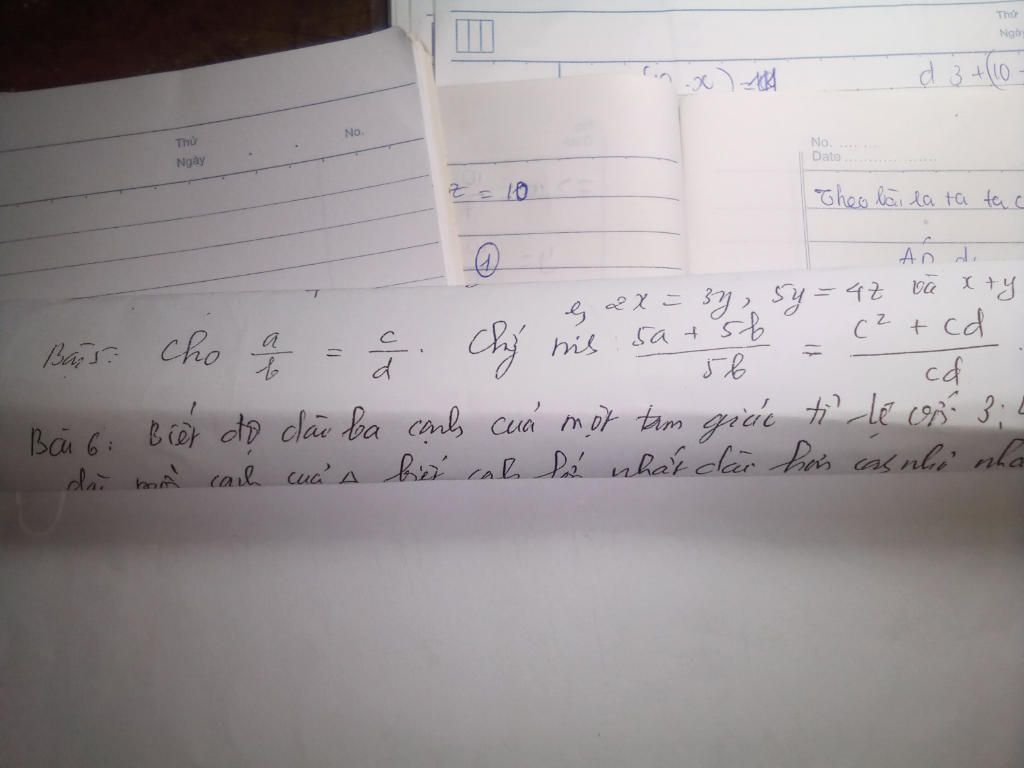 Thứ
Ngày
d 3 + (10 -
Thứ
Ngày
No.
z = 10
①
No. ......
Date ..................
Theo bài ra ta ta c
e, 2x = 3y, 5y = 4z và x + y
Bài 5: Cho a/b = c/d. Chứ ms (5a + 5b)/5b = (c² + cd)/cd.
Bài 6: Biết độ dài ba cạnh của một tam giác tỉ lệ với 3;
dài mỗi cạnh của Δ biết cạnh nhất dài hơn cạnh nhỏ nhấ